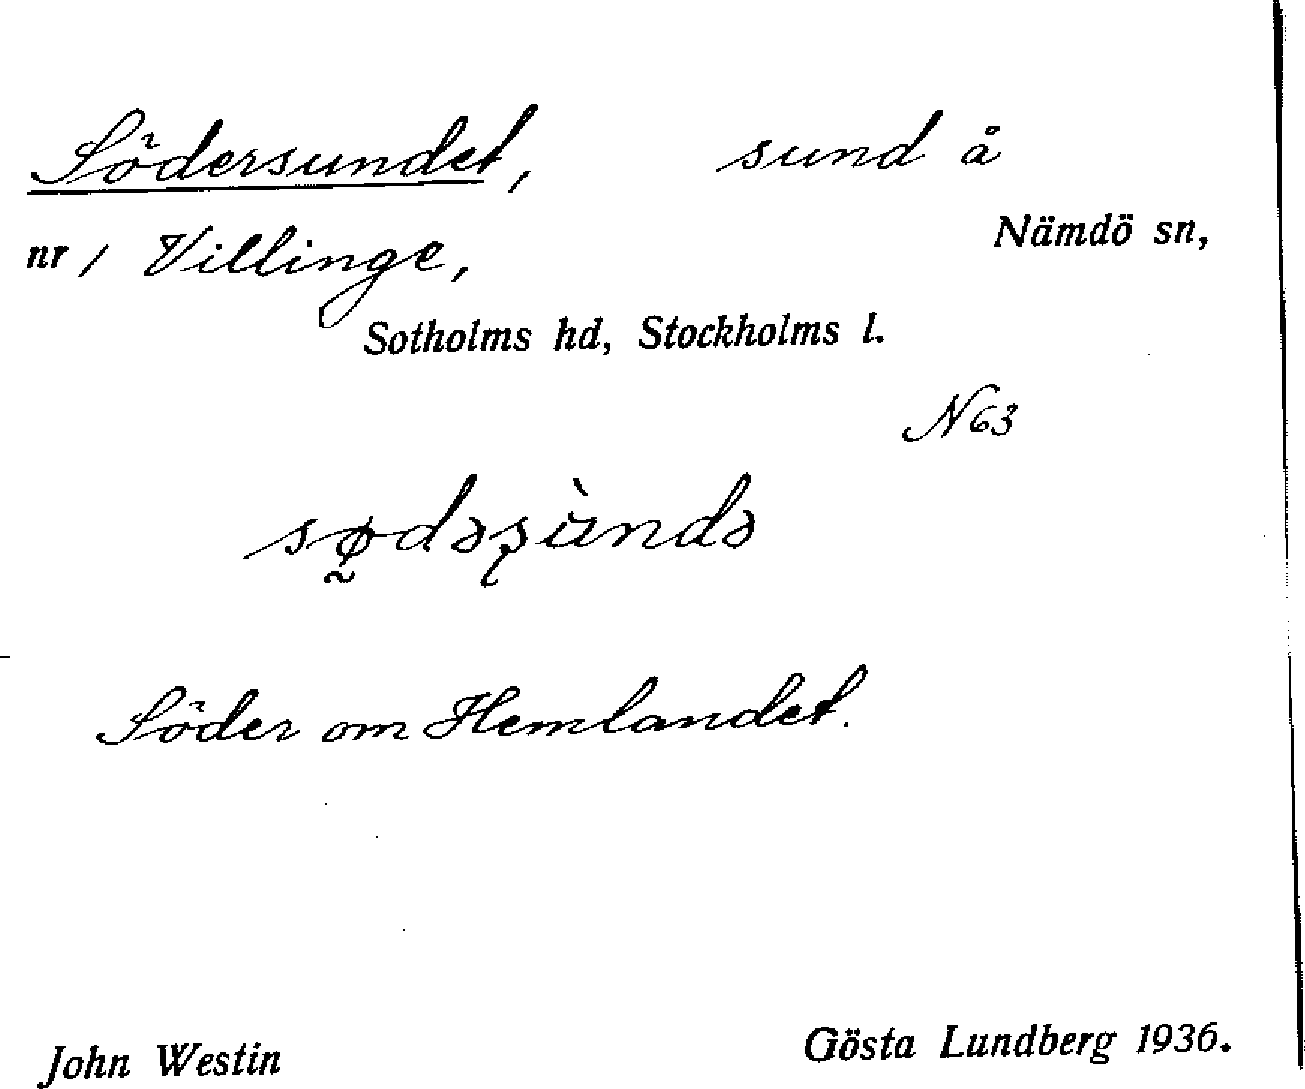 Södersundet, sund å
nr 1 Villinge, Nämdö sn,
Sotholms hd, Stockholms l.
N63
sø̰dəʂùndə
Söder om Hemlandet.
John Westin Gösta Lundberg 1936.